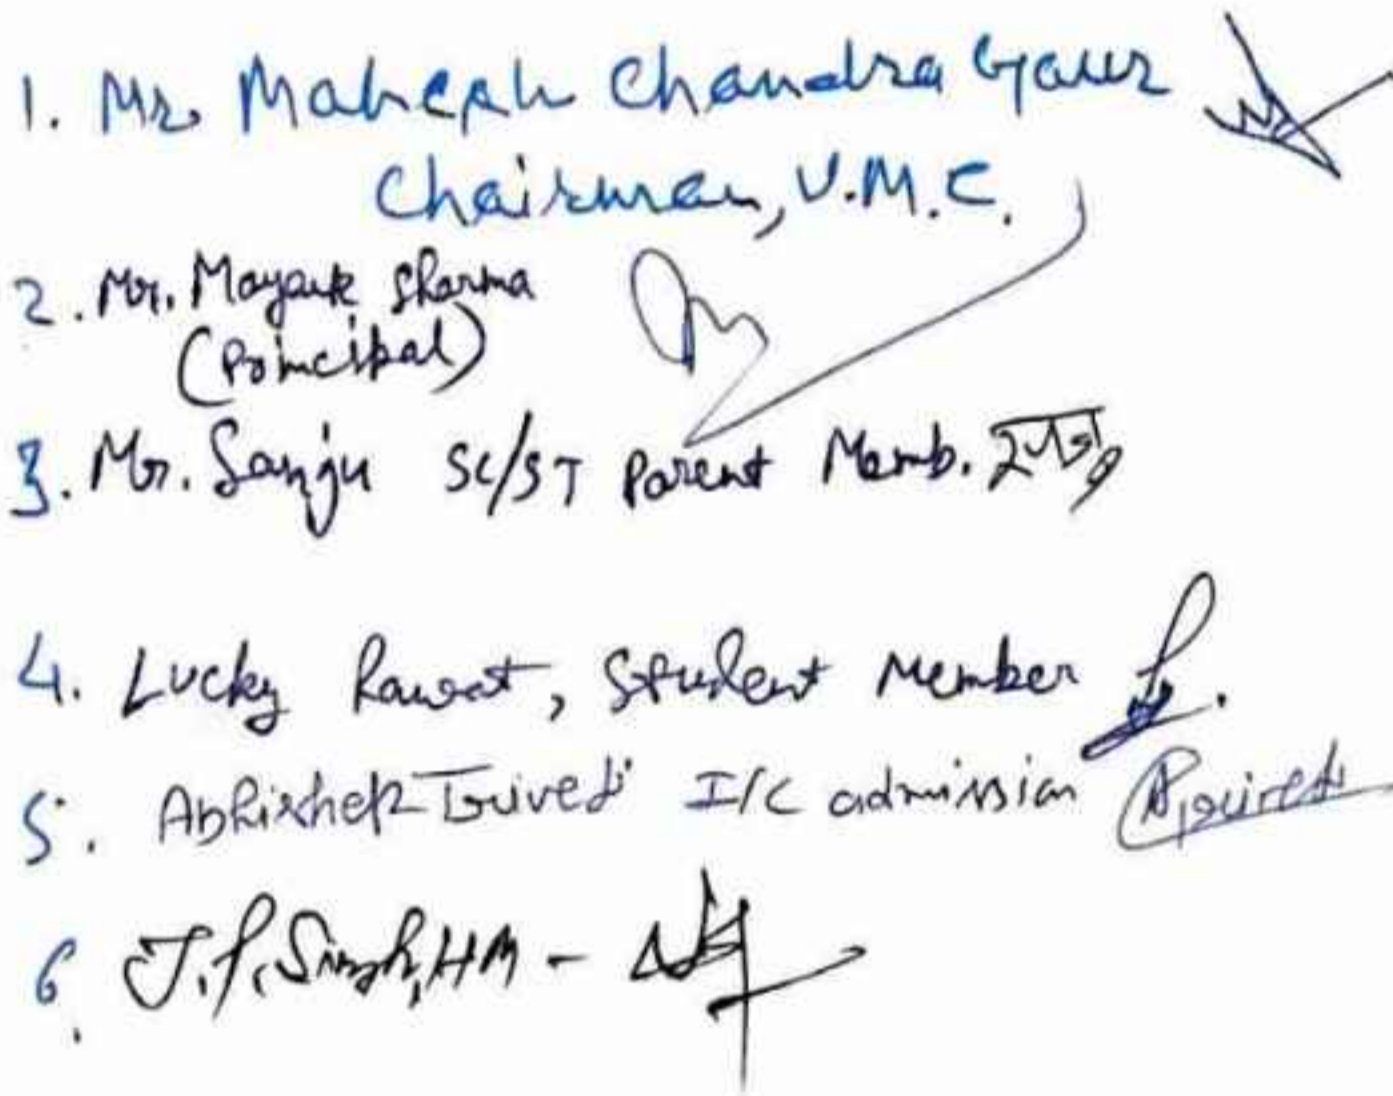 1. Mr. Mahesh Chandra Gaur
Chairman, V.M.C.
2. Mr. Mayank Sharma
(Principal)
3. Mr. Sanju SC/ST Parent Memb.
4. Lucky Rawat, Student Member
5. Abhishek Trivedi I/C admission
6. J.P. Singh, HM -